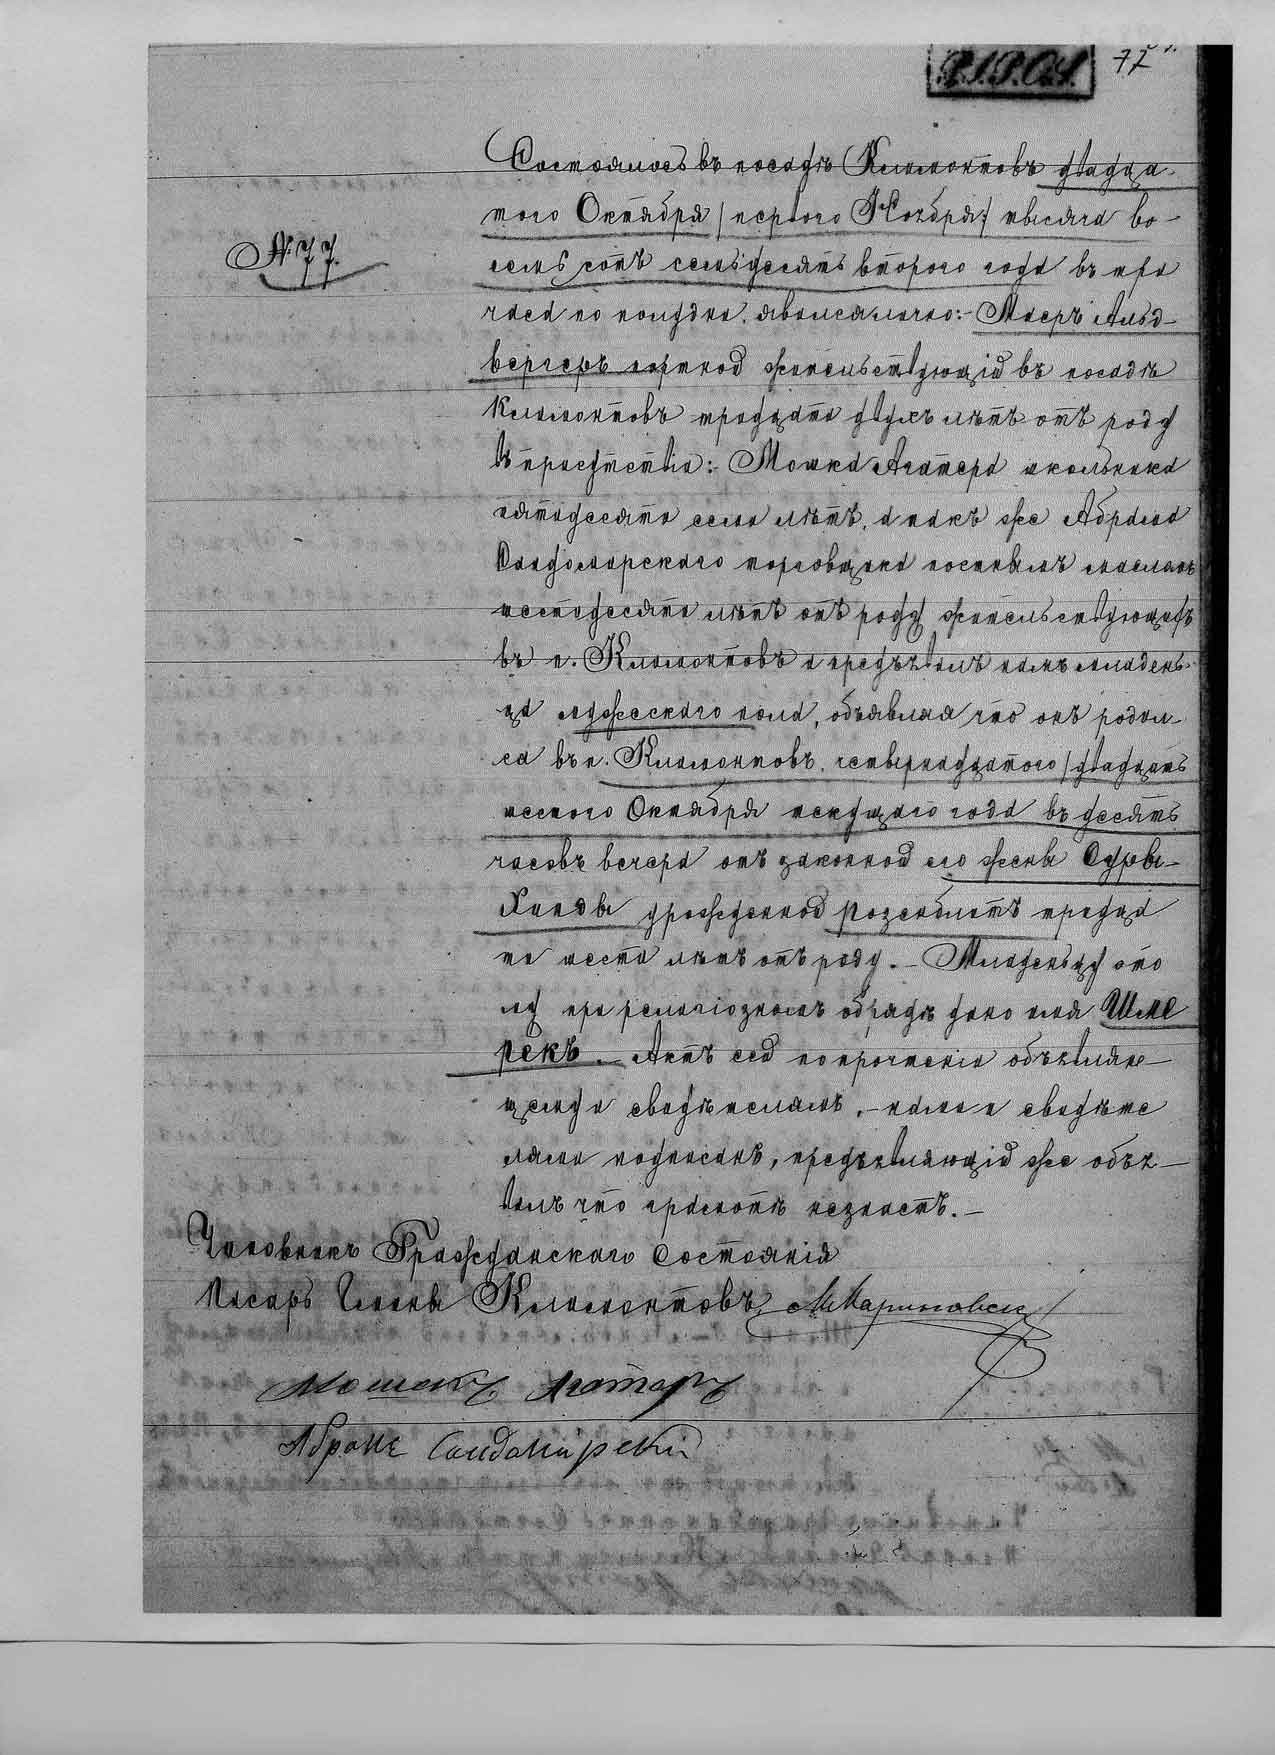 77
№ 77.
Состоялось въ посадѣ Климонтовъ двадца-
таго Октября / перваго Ноября / тысяча во-
семь сотъ семьдесятъ втораго года въ три
часа по полудни. явился лично:- Маеръ Альд-
бергеръ портной жительствующій въ посадѣ
Климонтовъ тридцати двухъ лѣтъ отъ роду
въ присутствіи: Мошка Агатера школьника
пятидесяти семи лѣтъ, а такъ же Абрама
Сандомирскаго торговщика постнымъ масломъ
шестидесяти лѣтъ отъ роду жительствующихъ
въ п. Климонтовъ и предъявилъ намъ младен-
ца мужескаго пола, объявляя что онъ родил-
ся въ п. Климонтовъ. четырнадцатого / двадцать
шестого Октября текущаго года въ десять
часовъ вечера отъ законной его жены Суры-
Хинды урожденной Розенблатъ тридца
ти шести лѣтъ отъ роду. - Младенцу это
му при религіозномъ обрядѣ дано имя Шме
рекъ. Актъ сей по прочтеніи объявляю-
щему и свидѣтелямъ, - нами и свидѣте
лями подписанъ, предъявляющій же объя-
вилъ что грамотѣ незнаетъ. -
Чиновникъ Гражданскаго Состоянія
Писарь Гмины Климонтовъ
Мошекъ Агатеръ
Абрамъ Сандомирскій